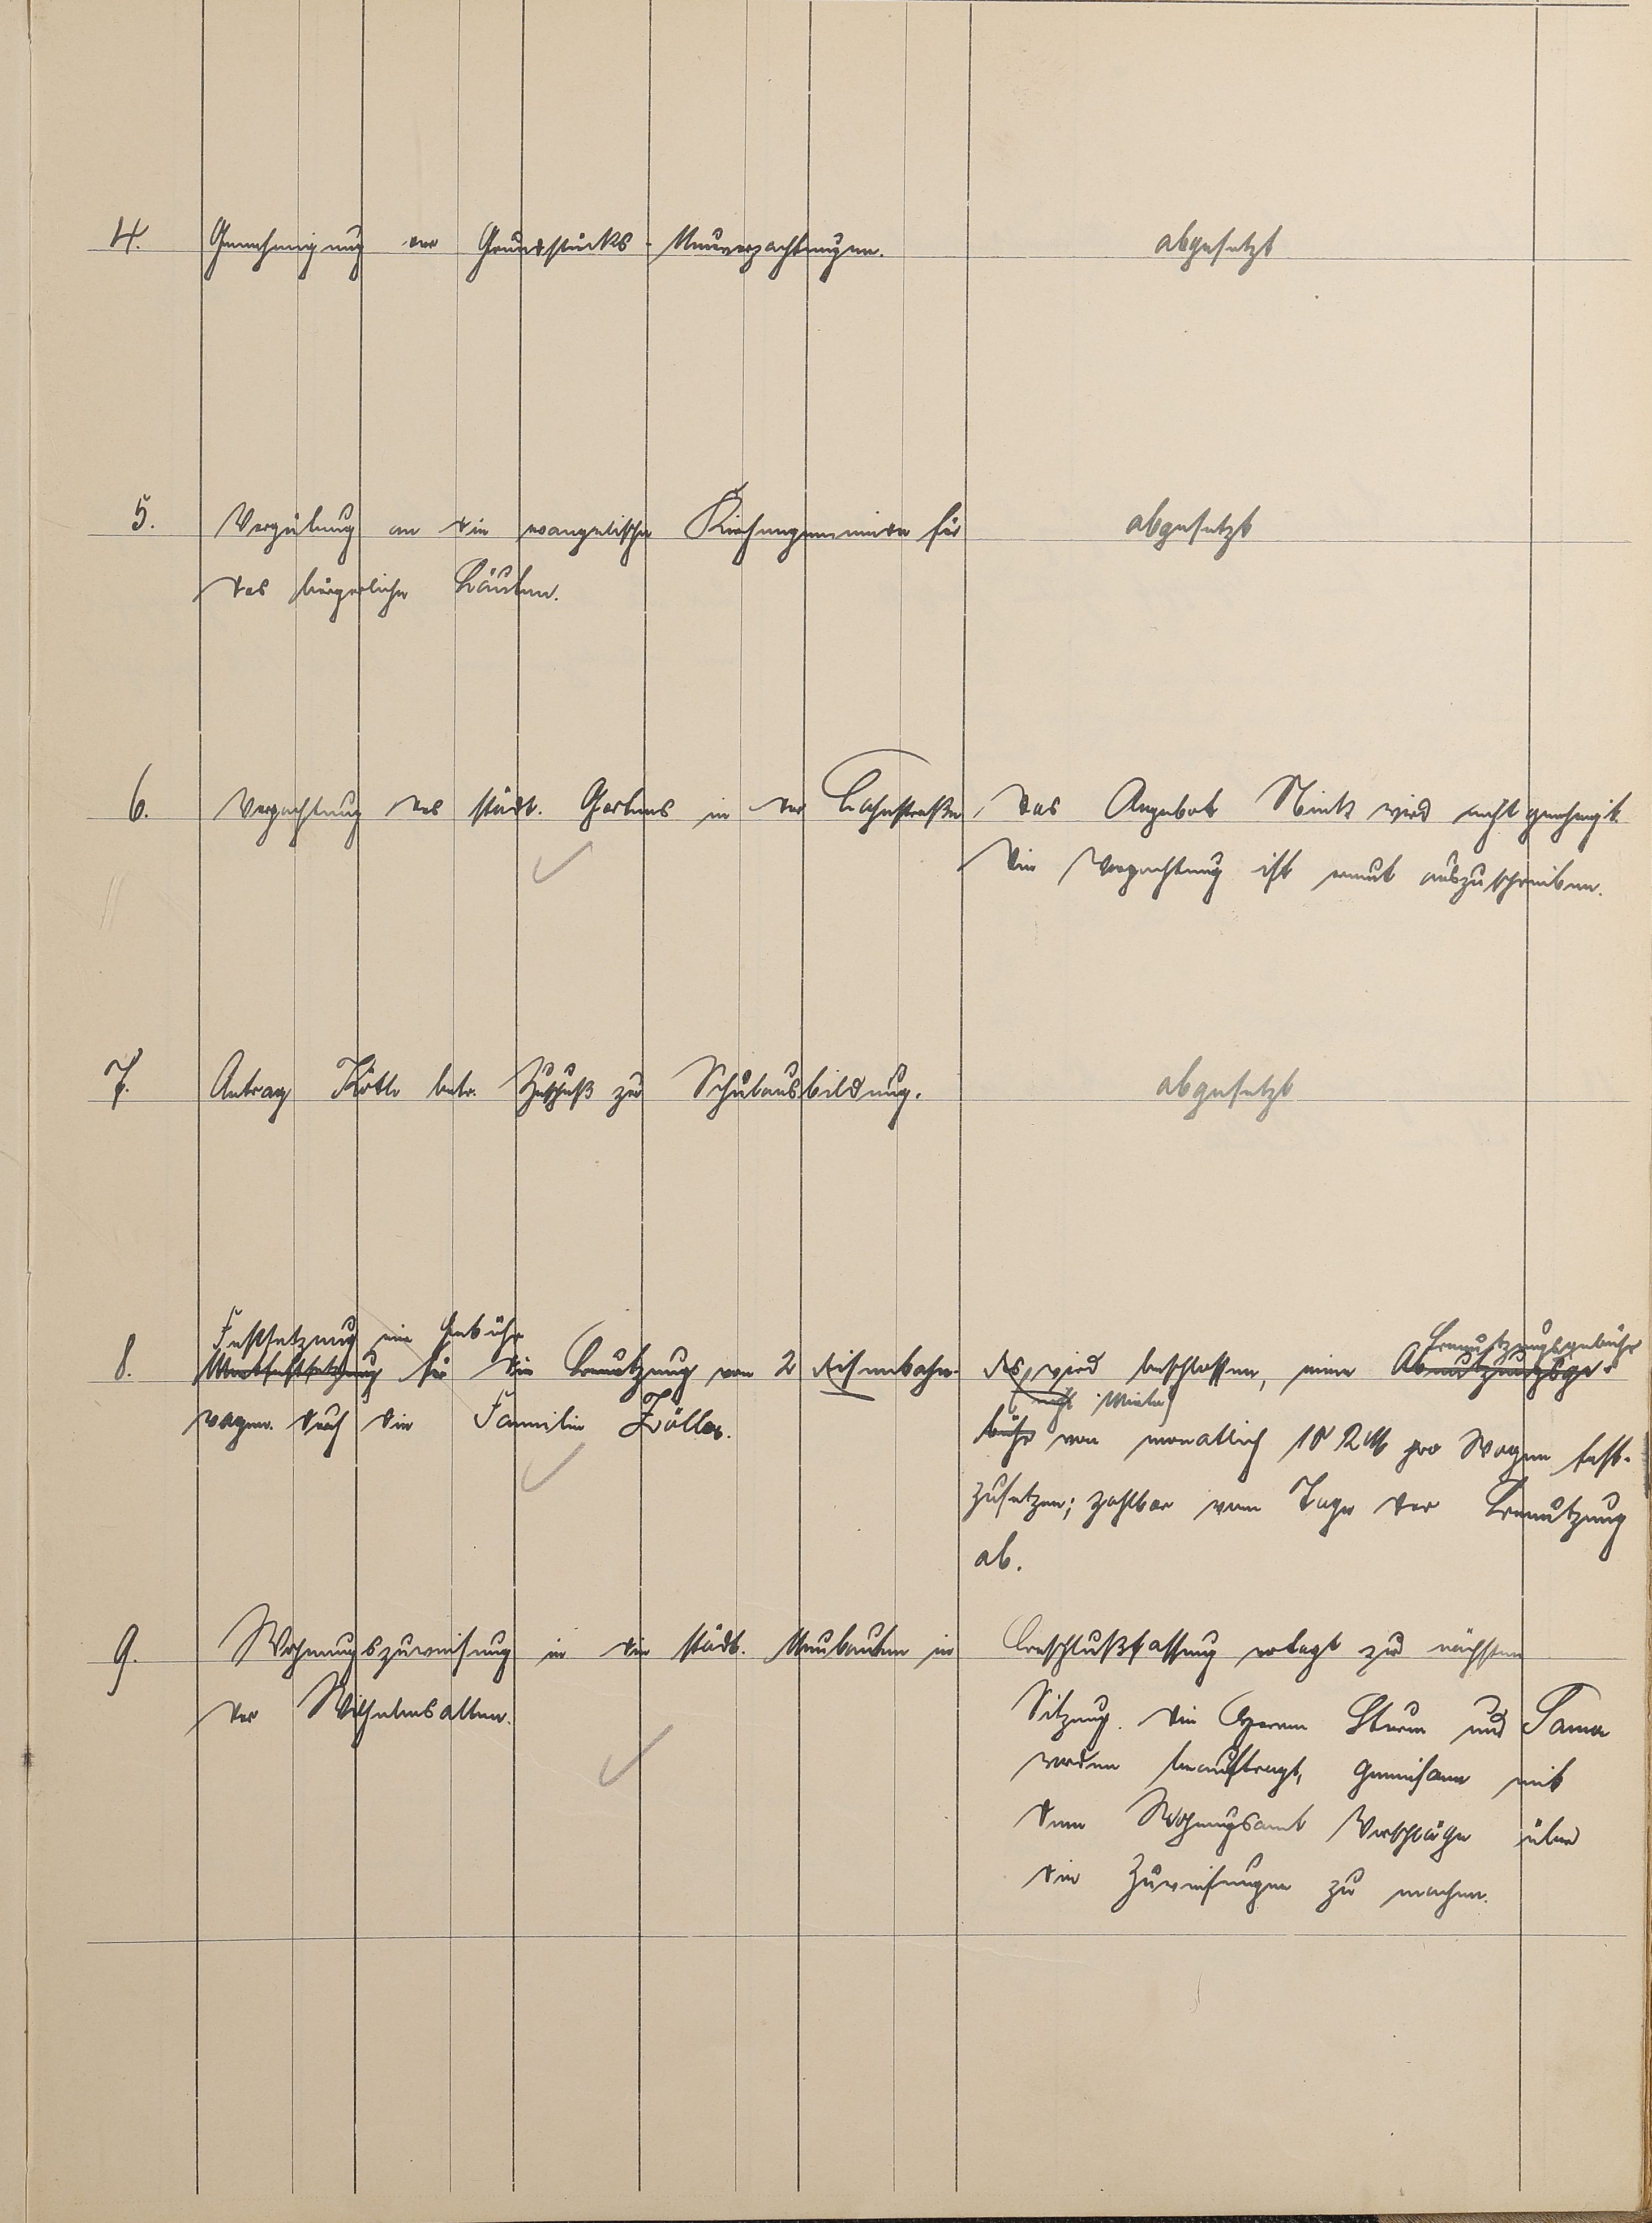 4. Genehmigung der Grundstücks-Neuverpachtungen. abgesetzt
5. Vergütung an die evangelische Kirchengemeinde für abgesetzt
das bürgerliche Läuten.
6. Verpachtung des städt. Gartens in der Lahnstraße. Das Angebot wird nicht genehmigt.
Die Verpachtung ist erneut auszuschreiben.
7. Antrag betr. Zuschuß zur Schulausbildung. abgesetzt
Festsetzung einer Gebühr
Benutzungsgebühr
8. Mietfestsetzung für die Benutzung von 2 Eisenbahn- Es wird beschlossen, eine Abnutzungsge-
(nicht Miete)
wagen durch die Familie Zöller. bühr von monatlich 10 RM pro Wagen fest-
zusetzen; zahlbar vom Tage der Benutzung
ab.
9. Wohnungszuweisung in die städt. Neubauten in Beschlußfassung vertagt zur nächsten
der Wilhelmsallee. Sitzung. Die Herren Sturm und
werden beauftragt, gemeinsam mit
dem Wohnungsamt Vorschläge über
die Zuweisungen zu machen.